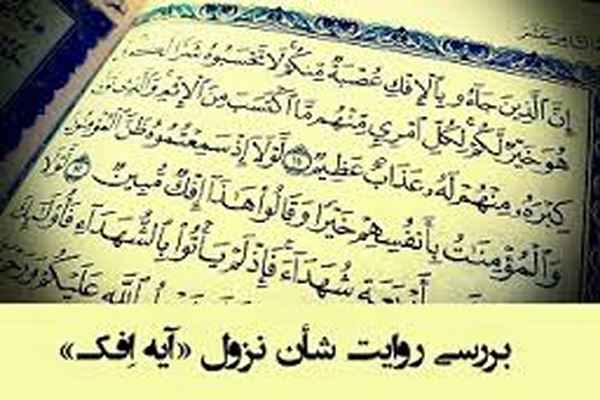 إِنَّ ٱلَّذِينَ جَآءُو بِٱلْإِفْكِ عُصْبَةٌ مِّنكُمْ لَا تَحْسَبُوهُ شَرًّا لَّكُم بَلْ
هُوَ خَيْرٌ لَّكُمْ لِكُلِّ ٱمْرِئٍ مِّنْهُم مَّا ٱكْتَسَبَ مِنَ ٱلْإِثْمِ وَٱلَّذِى تَوَلَّىٰ
كِبْرَهُۥ مِنْهُمْ لَهُۥ عَذَابٌ عَظِيمٌ ١١ لَّوْلَآ إِذْ سَمِعْتُمُوهُ ظَنَّ ٱلْمُؤْمِنُونَ
وَٱلْمُؤْمِنَٰتُ بِأَنفُسِهِمْ خَيْرًا وَقَالُوا۟ هَٰذَآ إِفْكٌ مُّبِينٌ ١٢ لَّوْلَا
أَرْبَعَةِ شُهَدَآءَ فَإِذْ لَمْ يَأْتُوا۟ بِٱلشُّهَدَآءِ فَأُو۟لَٰٓئِكَ
ٱللَّهِ عَلَيْكُمْ
بررسی روایت شأن نزول «آیه اِفک»